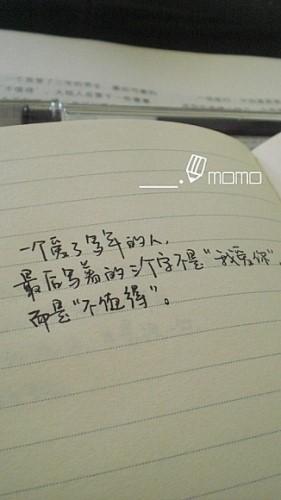 ____. momo
一个爱了多年的人，
最后写着的三个字不是“我爱你”，
而是“不值得”。